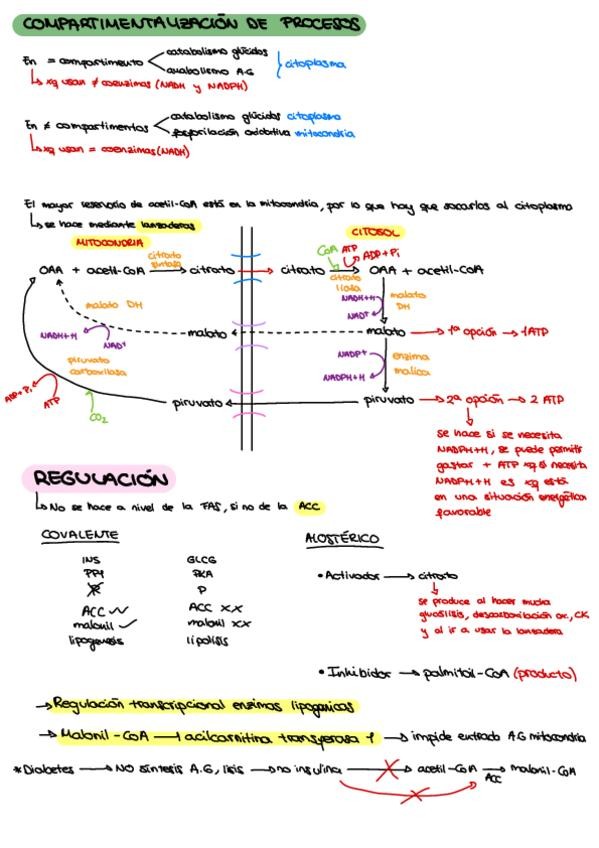 COMPARTIMENTALIZACIÓN DE PROCESOS
En = compartimento
catabolismo glúcidos
anabolismo A.G
citoplasma
↳ xq usan ≠ coenzimas (NADH y NADPH)
En ≠ compartimentos
catabolismo glúcidos citoplasma
fosforilación oxidativa mitocondria
↳ xq usan = coenzimas (NADH)
El mayor reservorio de acetil-CoA está en la mitocondria, por lo que hay que sacarlos al citoplasma
↳ se hace mediante lanzaderas
MITOCONDRIA
CITOSOL
OAA + acetil-CoA
citrato sintasa
citrato → citrato
CoA ATP ADP+Pi
citrato liasa
OAA + acetil-CoA
malato DH
NADH+H
NAD+
malato
NADH+H
NAD+
malato DH
malato → 1ª opción → 1ATP
piruvato carboxilasa
ADP+Pi
ATP
CO2
NADP+
NADPH+H
enzima málica
piruvato
piruvato → 2ª opción → 2 ATP
se hace si se necesita
NADPH+H, se puede permitir
gastar + ATP xq si necesita
NADPH+H es xq está
en una situación energética
favorable
REGULACIÓN
↳ No se hace a nivel de la FAS, si no de la ACC
COVALENTE
INS GLCG
PP1 PKA
P P
ACC ✓✓ ACC XX
malonil ✓ malonil XX
lipogenesis lipolisis
ALOSTÉRICO
• Activador → citrato
se produce al hacer mucha
glucólisis, descarboxilación ox., CK
y al ir a usar la lanzadera
• Inhibidor → palmitoil-CoA (producto)
→ Regulación transcripcional enzimas lipogénicas
→ Malonil-CoA ⊣ acilcarnitina transferasa 1 → impide entrada A.G mitocondria
*Diabetes → NO síntesis A.G, lisis → no insulina → acetil-CoA → malonil-CoA
ACC